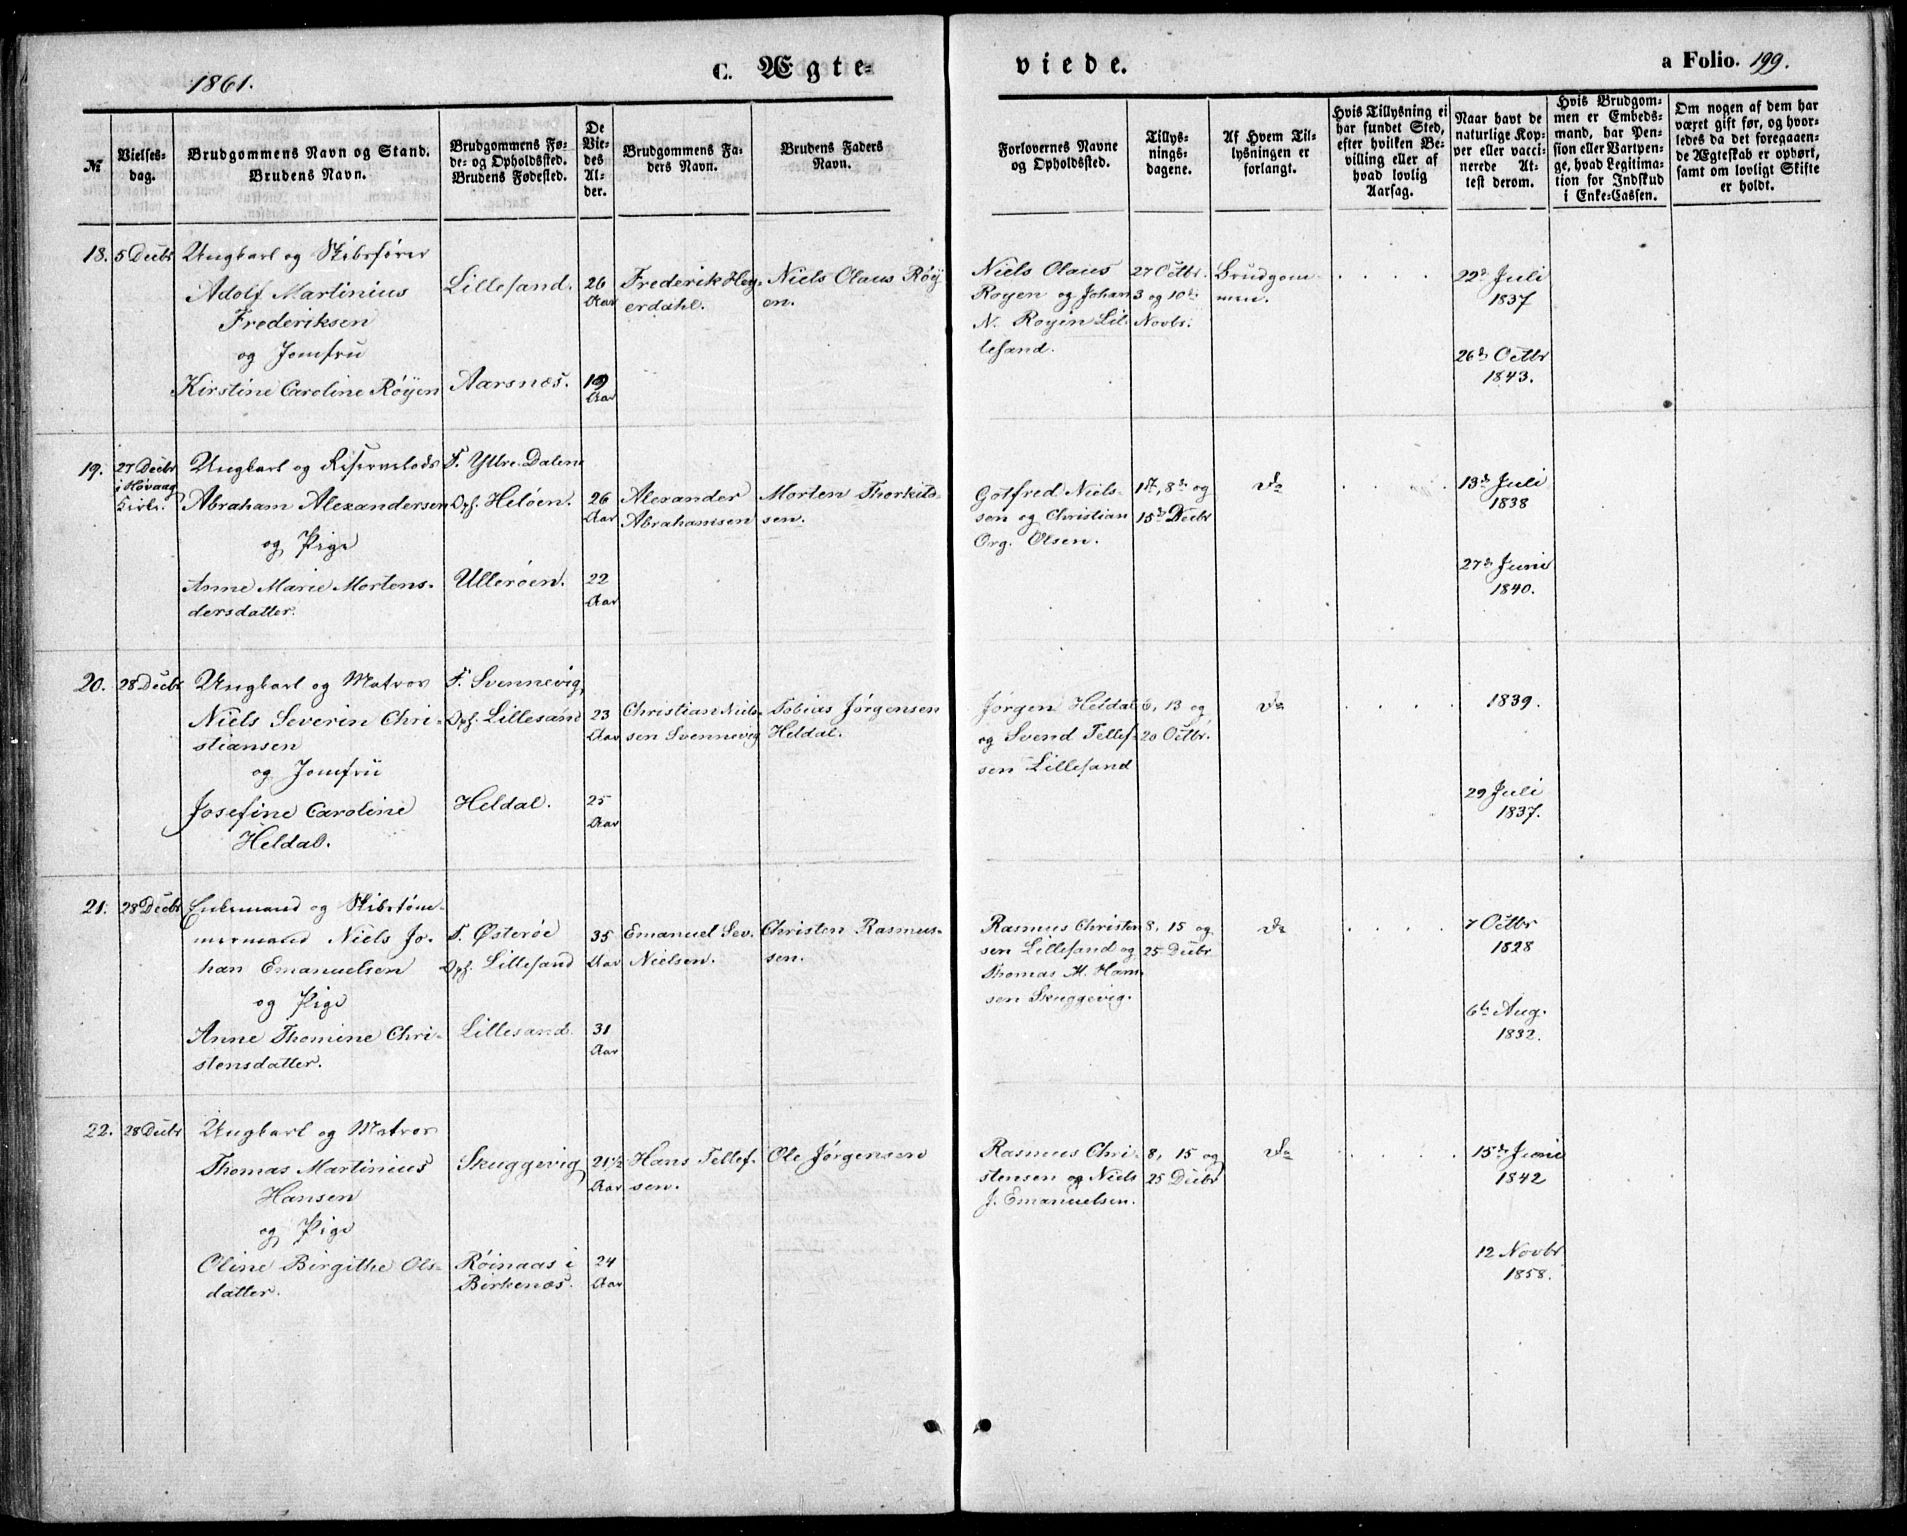 1861.
C. Ægte-
viede.
a Folio. 199.
№
Vielses-
dag.
Brudgommens Navn og Stand.
Brudens Navn.
Brudgommens Fø-
de- og Opholdssted.
Brudens Fødested.
De
Vie-
des
Al-
der.
Brudgommens Fa-
ders Navn.
Brudens Faders
Navn.
Forlovernes Navne
og Opholdssted.
Tillys-
nings-
dagene.
Af Hvem Til-
lysningen er
forlangt.
Hvis Tillysning ei
har fundet Sted,
efter hvilken Be-
villing eller af
hvad lovlig
Aarsag.
Naar havt de
naturlige Kop-
per eller vacci-
nerede At-
test derom.
Hvis Brudgom-
men er Embeds-
mand, har Pen-
sion eller Vartpen-
ge, hvad Legitima-
tion for Indskud
i Enke-Cassen.
Om nogen af dem har
været gift før, og hvor-
ledes da det foregaaen-
de Ægteskab er ophørt,
samt om lovligt Skifte
er holdt.
18. 5 Decbr
Ungkarl og Skibsfører
Adolf Martinius
Frederiksen
og Jomfru
Kirstine Caroline Røyen
Lillesand.
Aarsnæs.
26
Aar
19
Aar
Frederik Hey-
erdahl.
Niels Olaus Røy-
en.
Niels Olaus
Royen og Johan
N. Royen Lil-
lesand.
27 Octbr.
3 og 10de
Novbr.
Brudgom-
men.
22de Juli
1837
26de Octbr
1843.
19. 27 Decbr
i Høvaag
Kirke.
Ungkarl og Reservelods
Abraham Alexandersen
og Pige
Anne Marie Mortens-
dersdatter.
F. Yttre Dalene
Oph. Heløen.
Ulleröen.
26
Aar
22
Aar
Alexander
Abrahamsen
Morten Thorkild-
sen.
Gotfred Niels-
sen og Christian
Org. Olsen.
1st, 8de og
15de Decbr
Do
13de Juli
1838
27de Juni
1840.
20. 28 Decbr
Ungkarl og Matros
Niels Severin Chri-
stiansen
og Jomfru
Josefine Caroline
Heldal.
F. Svennevig,
Oph. Lillesand
Heldal.
23
Aar
25
Aar
Christian Niel-
sen Svennevig
Tobias Jørgensen
Heldal.
Jørgen Heldal
og Svend Tellef-
sen Lillesand
6, 13 og
20 Octbr.
Do
1839.
29 Juli
1837.
21. 28 Decbr
Enkemand og Skibstøm-
mermand Niels Jo-
han Emanuelsen
og Pige
Anne Thomine Chri-
stensdatter.
F. Østerøe
Oph. Lillesand
Lillesand.
35
Aar
31
Aar
Emanuel Sev.
Nielsen.
Christen Rasmus-
sen.
Rasmus Christen
sen Lillesand og
Thomas M. Han-
sen Skuggevig.
8, 15 og
25 Decbr
Do
7 Octbr
1828
6te Aug.
1832.
22. 28 Decbr
Ungkarl og Matros
Thomas Martinius
Hansen
og Pige
Oline Birgithe Ols-
datter.
Skuggevig
Røinaas i
Birkenæs.
21 1/2
Aar
24
Aar
Hans Tellef-
sen.
Ole Jørgensen
Rasmus Chri-
stensen og Niels
J. Emanuelsen.
8, 15 og
25 Decbr
Do
15de Juni
1842
12 Novbr
1858.